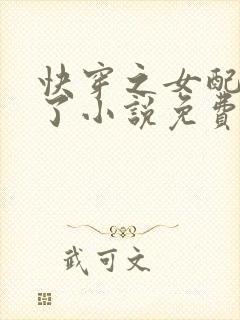 快穿之女配
了小說免費
武可文